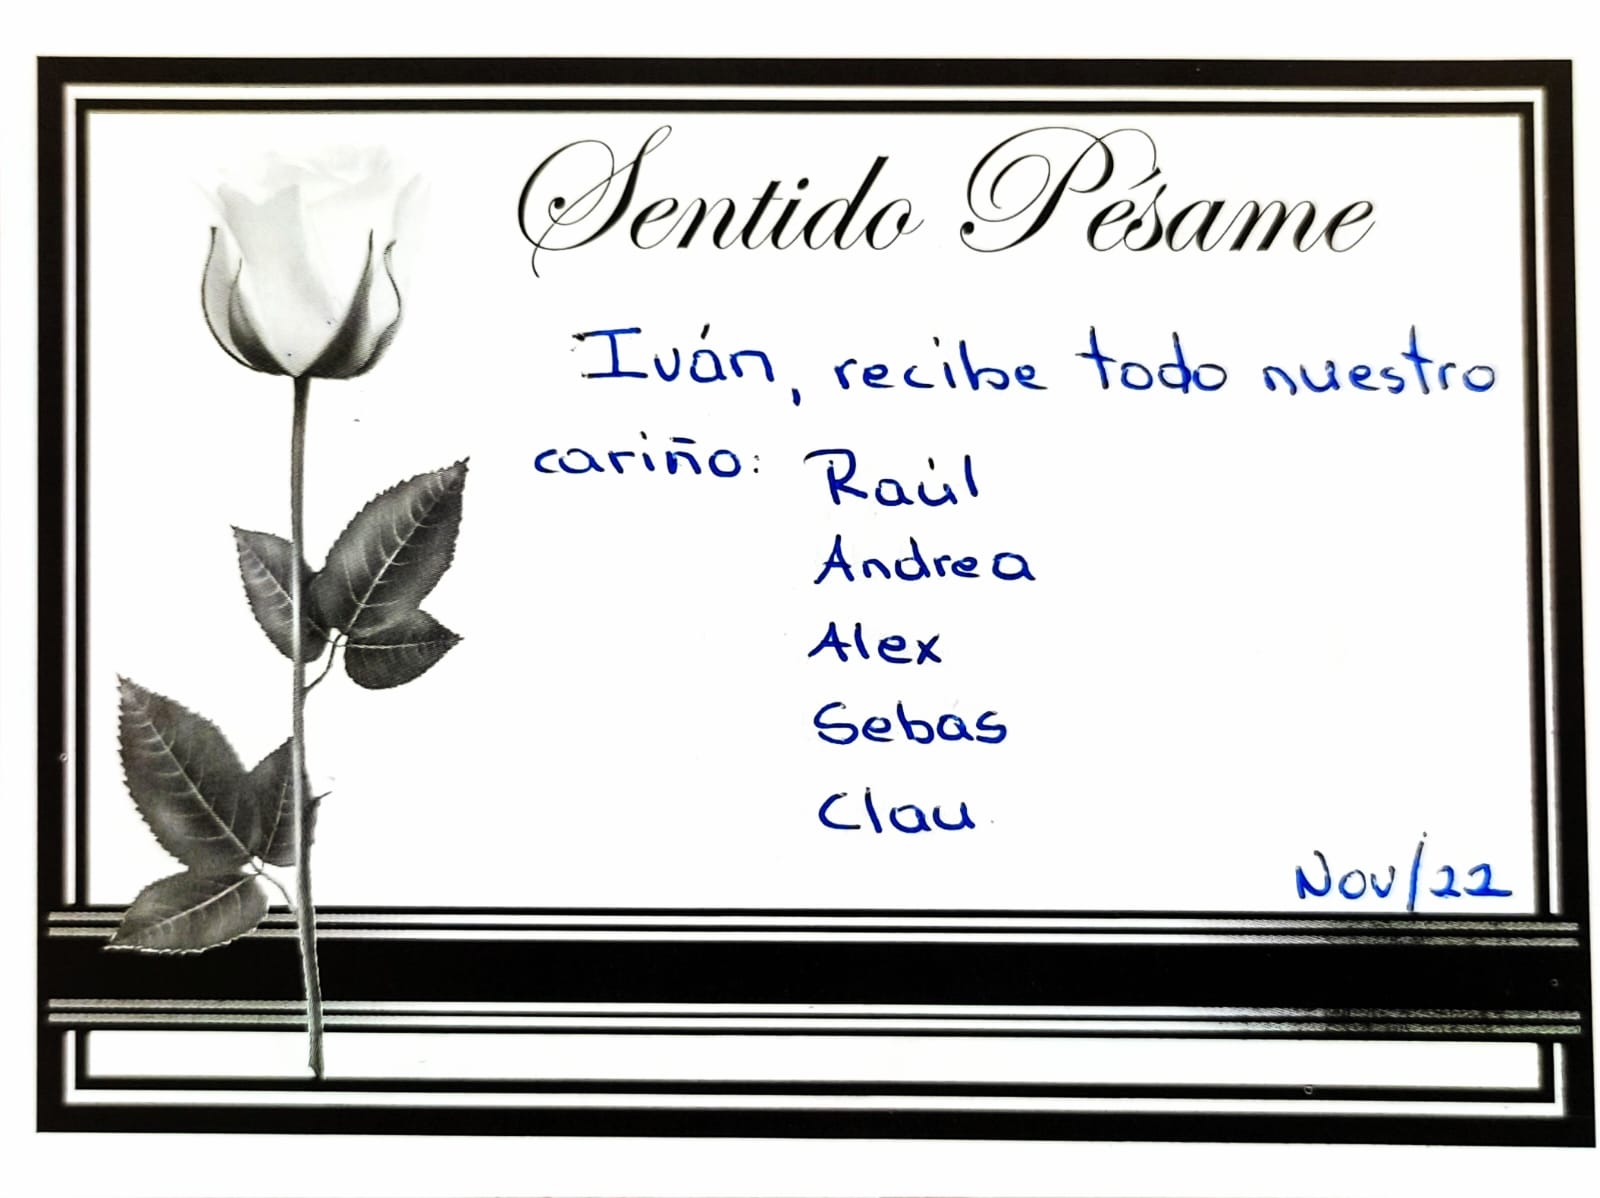 Sentido Pésame
Iván, recibe todo nuestro
cariño: Raúl
Andrea
Alex
Sebas
Clau
Nov/22